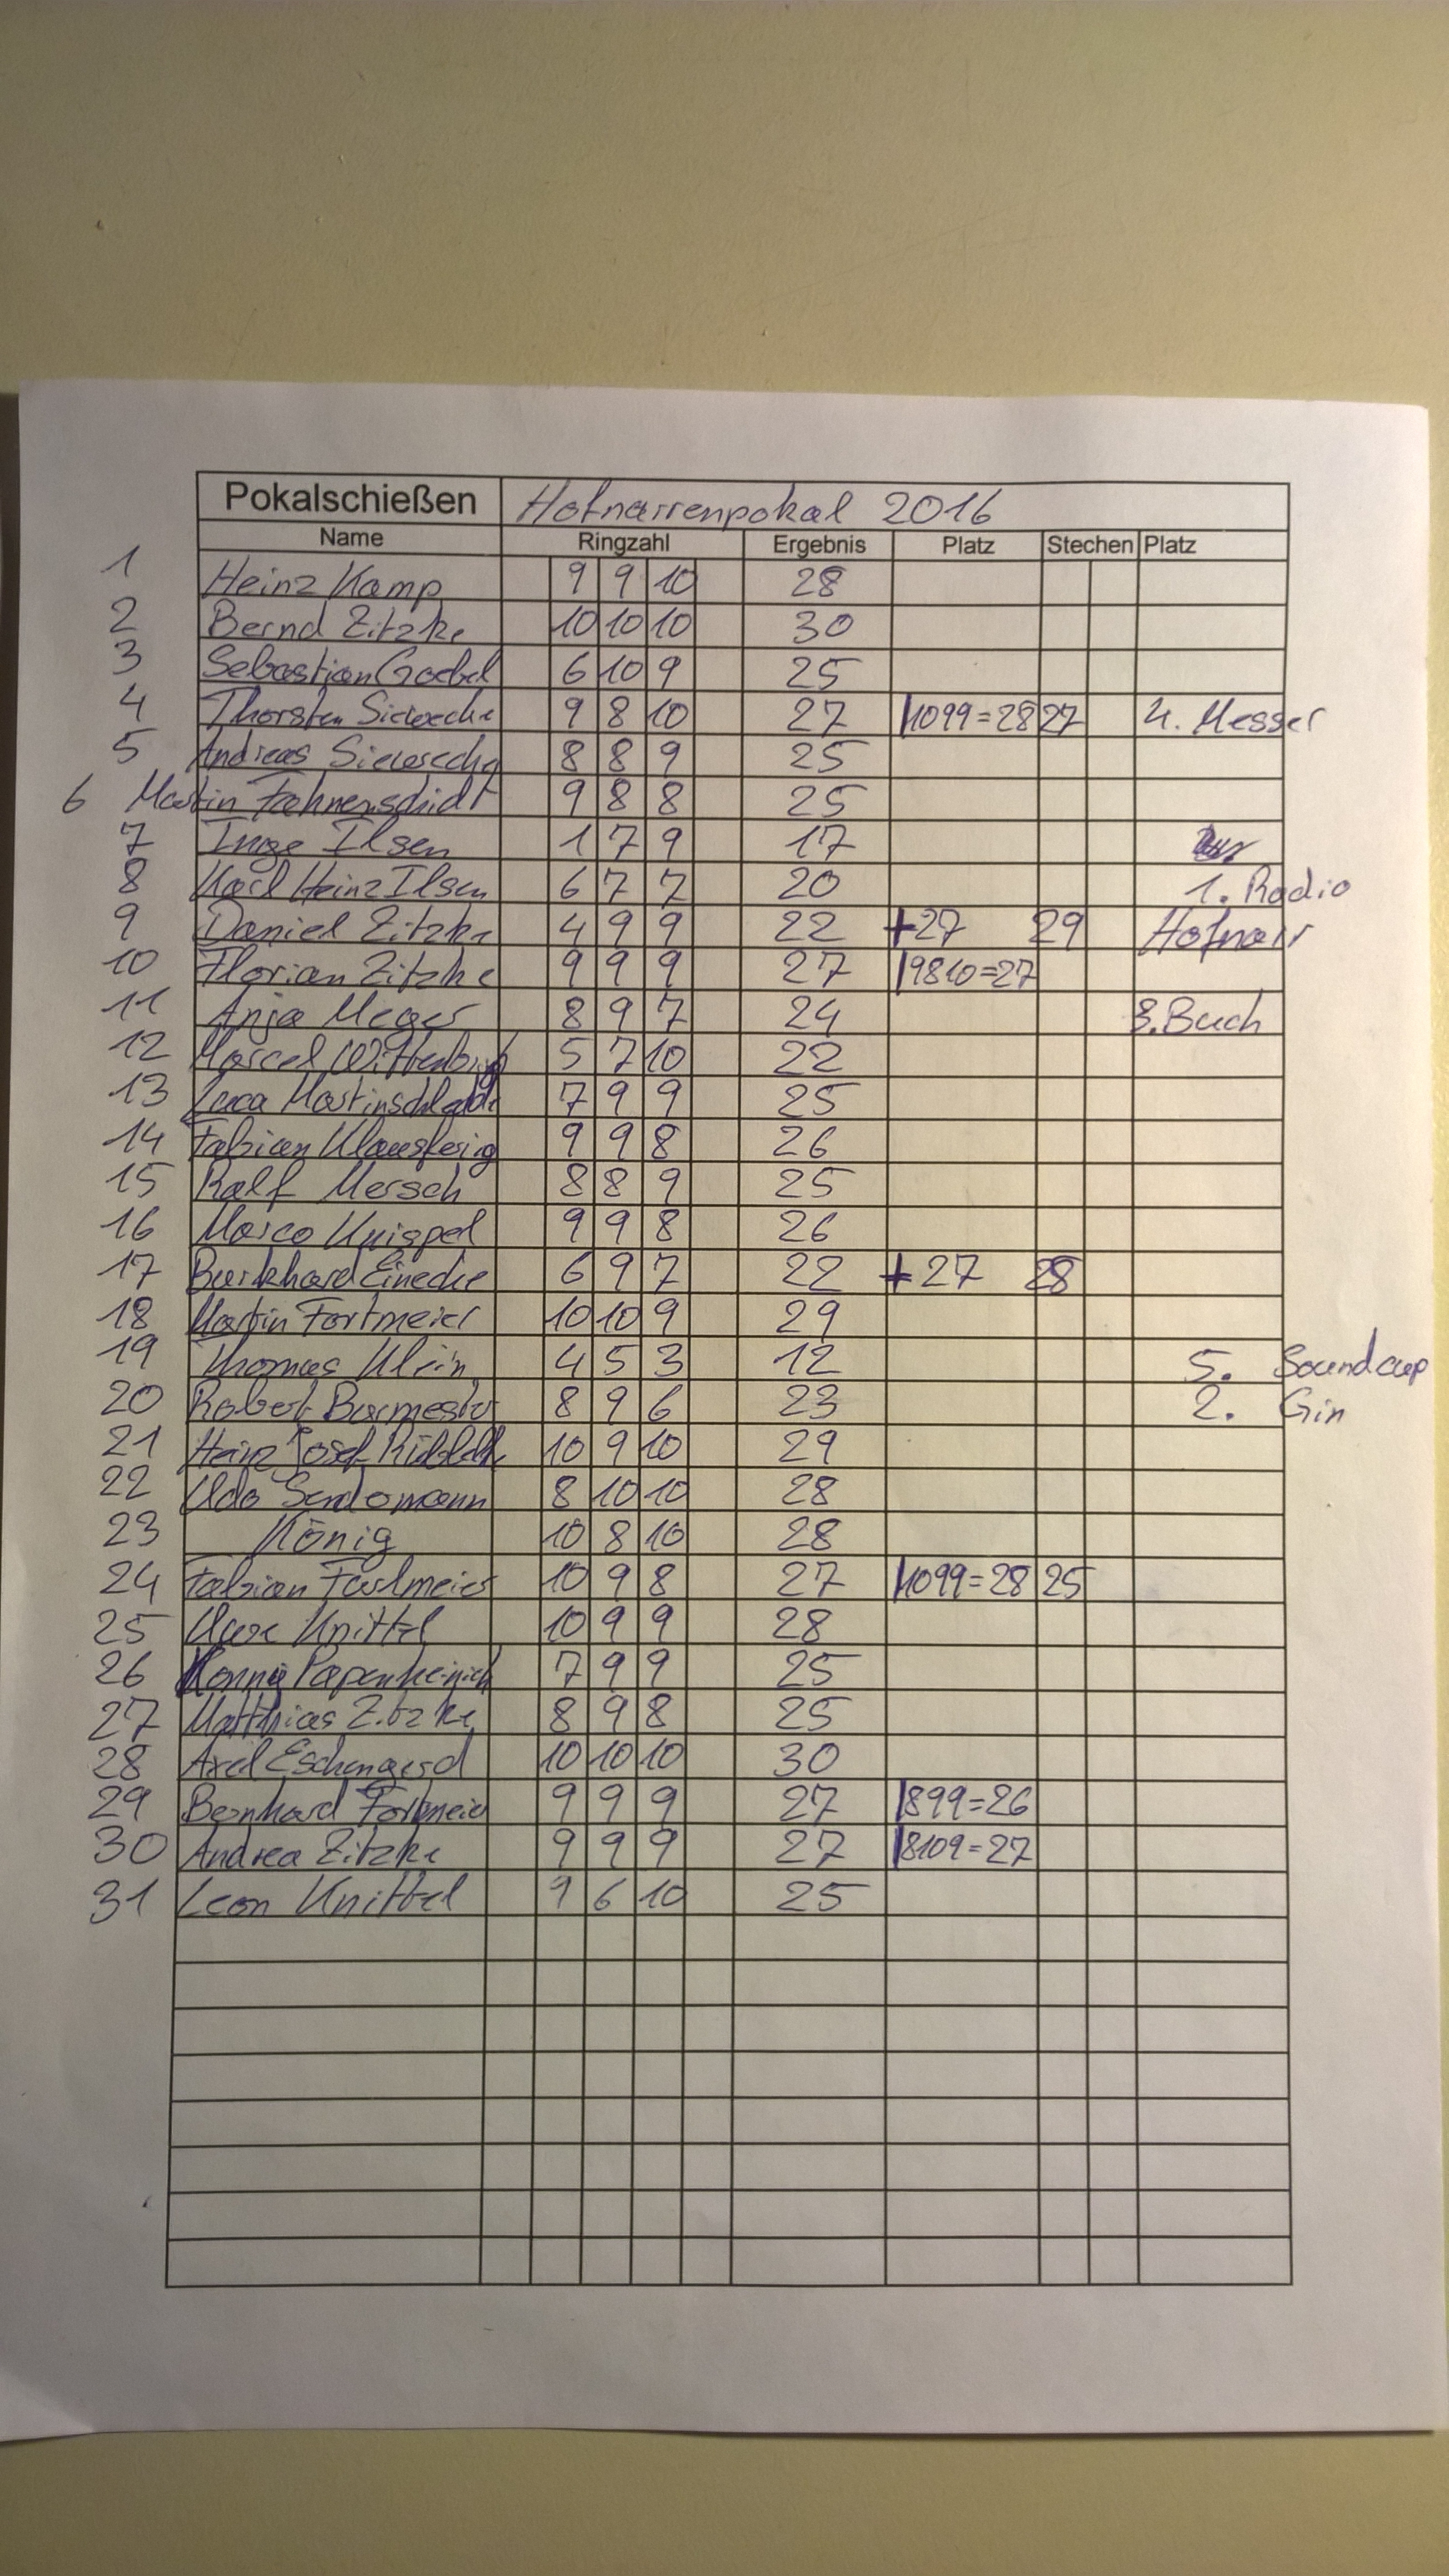 Pokalschießen Hofnarrenpokal 2016
Name Ringzahl Ergebnis Platz Stechen Platz
1 Heinz Kamp 9 9 10 28
2 Bernd Zitzke 10 10 10 30
3 Sebastian Goebel 6 10 9 25
4 Thorsten 9 8 10 27 1099=28 27 4. Messer
5 Andreas 8 8 9 25
6 Martin 9 8 8 25
7 Inge Ilsen 1 7 9 17
8 Karl Heinz Ilsen 6 7 7 20 1. Radio
9 Daniel Zitzke 4 9 9 22 +27 29 Hofnarr
10 Florian Zitzke 9 9 9 27 9810=27
11 Anja Meyer 8 9 7 24 3. Buch
12 Marcel 5 7 10 22
13 Luca 7 9 9 25
14 Fabian 9 9 8 26
15 Ralf Mersch 8 8 9 25
16 Marco Knispel 9 9 8 26
17 Burkhard Einecke 6 9 7 22 +27 28
18 Martin Fortmeier 10 10 9 29
19 Thomas Klein 4 5 3 12 5. Soundcup
20 Robert Burmester 8 9 6 23 2. Gin
21 Heinz Josef 10 9 10 29
22 Udo 8 10 10 28
23 König 10 8 10 28
24 Fabian Fortmeier 10 9 8 27 1099=28 25
25 Uwe Knittel 10 9 9 28
26 7 9 9 25
27 Matthias Zitzke 8 9 8 25
28 Axel Eschengerd 10 10 10 30
29 Bernhard Fortmeier 9 9 9 27 899=26
30 Andrea Zitzke 9 9 9 27 8109=27
31 Leon Knittel 9 6 10 25